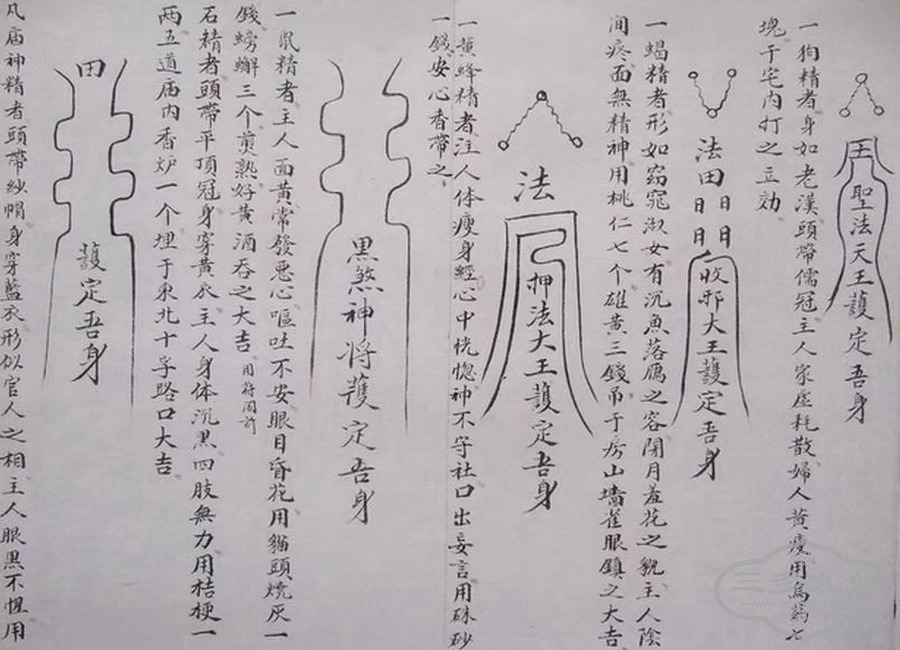 一狗精者身如老漢頭帶儒冠主人家虛耗散婦人黃瘦用烏
塊于宅內打之立効
王聖法天王護定吾身
一蝎精者形如窈窕淑女有沉魚落鴈之容閉月羞花之貌主人陰
間疼面無精神用桃仁七个雄黃三錢吊于房山墻雀眼鎮之大吉
法田日日日日收邪大王護定吾身
法押法大王護定吾身
一黃蜂精者注人体瘦身經心中恍惚神不守社口出妄言用硃砂
一錢安心香帶之
黑煞神将護定吾身
一鼠精者主人面黃常發悪心嘔吐不安眼目昏花用貓頭燒灰一
錢螃蠏三个煎熟好黃酒吞之大吉用符同前
石精者頭帶平頂冠身穿黃衣主人身体沉黑四肢無力用桔梗一
两五道庙內香炉一个埋于東北十字路口大吉
田護定吾身
凡庙神精者頭帶紗帽身穿藍衣形似官人之相主人眼黑不惺用